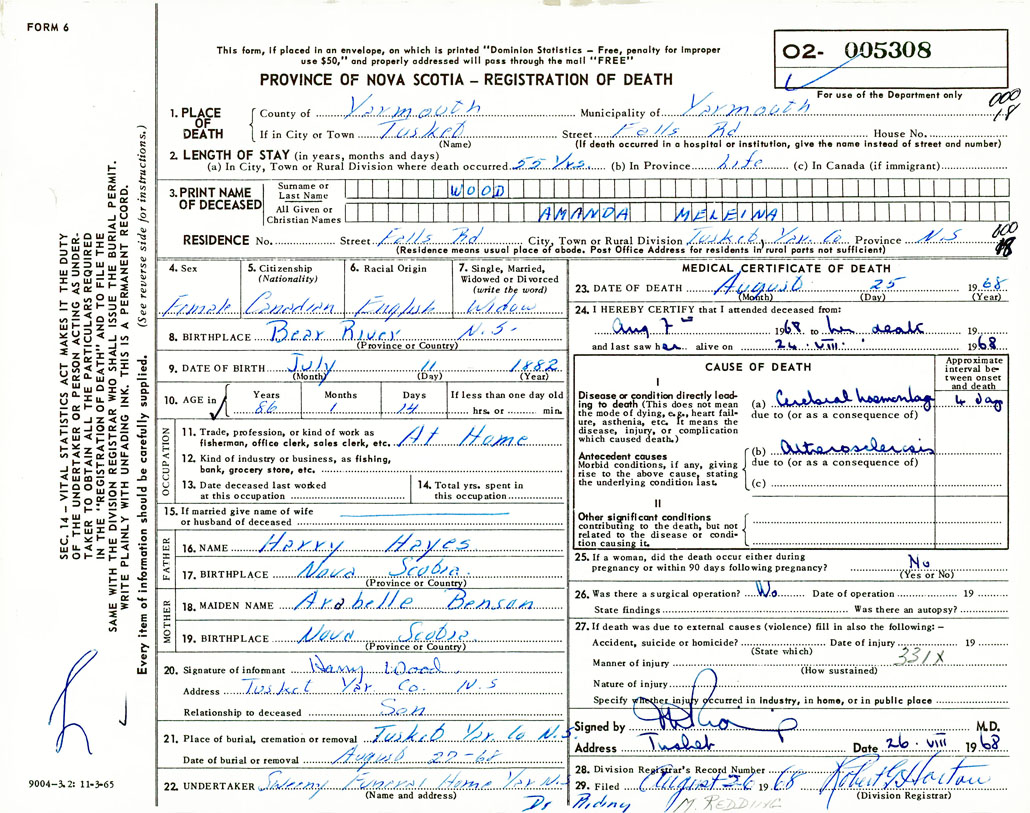 FORM 6
This form, if placed in an envelope, on which is printed "Dominion Statistics – Free, penalty for improper
use $50," and properly addressed will pass through the mail "FREE"
PROVINCE OF NOVA SCOTIA – REGISTRATION OF DEATH
O2- 005308
For use of the Department only
000
18
1. PLACE OF DEATH
County of Yarmouth Municipality of Yarmouth
If in City or Town Tusket Street Falls Rd House No.
(Name) (If death occurred in a hospital or institution, give the name instead of street and number)
2. LENGTH OF STAY (in years, months and days)
(a) In City, Town or Rural Division where death occurred 55 Yrs. (b) In Province Life (c) In Canada (if immigrant)
3. PRINT NAME OF DECEASED
Surname or Last Name WOOD
All Given or Christian Names AMANDA MELEINA
RESIDENCE No. Street Falls Rd City, Town or Rural Division Tusket, Yar. Co. Province N.S
(Residence means usual place of abode. Post Office Address for residents in rural parts not sufficient)
000
18
4. Sex Female
5. Citizenship (Nationality) Canadian
6. Racial Origin English
7. Single, Married, Widowed or Divorced (write the word) Widow
8. BIRTHPLACE Bear River N.S.
(Province or Country)
9. DATE OF BIRTH July 11 1882
(Month) (Day) (Year)
10. AGE in Years 86 Months 1 Days 14 If less than one day old hrs. or min.
OCCUPATION
11. Trade, profession, or kind of work as
fisherman, office clerk, sales clerk, etc. At Home
12. Kind of industry or business, as fishing,
bank, grocery store, etc.
13. Date deceased last worked
at this occupation
14. Total yrs. spent in
this occupation
15. If married give name of wife
or husband of deceased
FATHER
16. NAME Harry Hayes
17. BIRTHPLACE Nova Scotia
(Province or Country)
MOTHER
18. MAIDEN NAME Arabelle Benson
19. BIRTHPLACE Nova Scotia
(Province or Country)
20. Signature of informant Harry Wood
Address Tusket Yar Co. N.S
Relationship to deceased Son
21. Place of burial, cremation or removal Tusket Yar Co N.S.
Date of burial or removal August 27-68
22. UNDERTAKER Sweeny Funeral Home Yar N.S
(Name and address)
MEDICAL CERTIFICATE OF DEATH
23. DATE OF DEATH August 25 1968
(Month) (Day) (Year)
24. I HEREBY CERTIFY that I attended deceased from:
Aug 7 1968 to her death 19
and last saw her alive on 24 . VIII . 1968
CAUSE OF DEATH
Approximate interval between onset and death
I
Disease or condition directly leading to death (This does not mean the mode of dying, e.g., heart failure, asthenia, etc. It means the disease, injury, or complication which caused death.)
(a) Cerebral haemorrhag 4 days
due to (or as a consequence of)
Antecedent causes
Morbid conditions, if any, giving rise to the above cause, stating the underlying condition last.
(b) Arterosclerosis
due to (or as a consequence of)
(c)
II
Other significant conditions
contributing to the death, but not
related to the disease or condition causing it.
25. If a woman, did the death occur either during
pregnancy or within 90 days following pregnancy? No
(Yes or No)
26. Was there a surgical operation? No Date of operation 19
State findings Was there an autopsy?
27. If death was due to external causes (violence) fill in also the following: –
Accident, suicide or homicide? Date of injury 19
(State which)
331X
Manner of injury
(How sustained)
Nature of injury
Specify whether injury occurred in industry, in home, or in public place
Signed by M.D.
Address Tusket Date 26 . VIII 1968
28. Division Registrar's Record Number
29. Filed August 26 1968 Robert G Horton
(Division Registrar)
Dr
M. REDDING
SEC. 14 – VITAL STATISTICS ACT MAKES IT THE DUTY
OF THE UNDERTAKER OR PERSON ACTING AS UNDER-
TAKER TO OBTAIN ALL THE PARTICULARS REQUIRED
IN THE "REGISTRATION OF DEATH" AND TO FILE THE
SAME WITH THE DIVISION REGISTRAR WHO SHALL ISSUE THE BURIAL PERMIT.
WRITE PLAINLY WITH UNFADING INK. THIS IS A PERMANENT RECORD.
Every item of information should be carefully supplied. (See reverse side for instructions.)
9004-3.2: 11-3-65